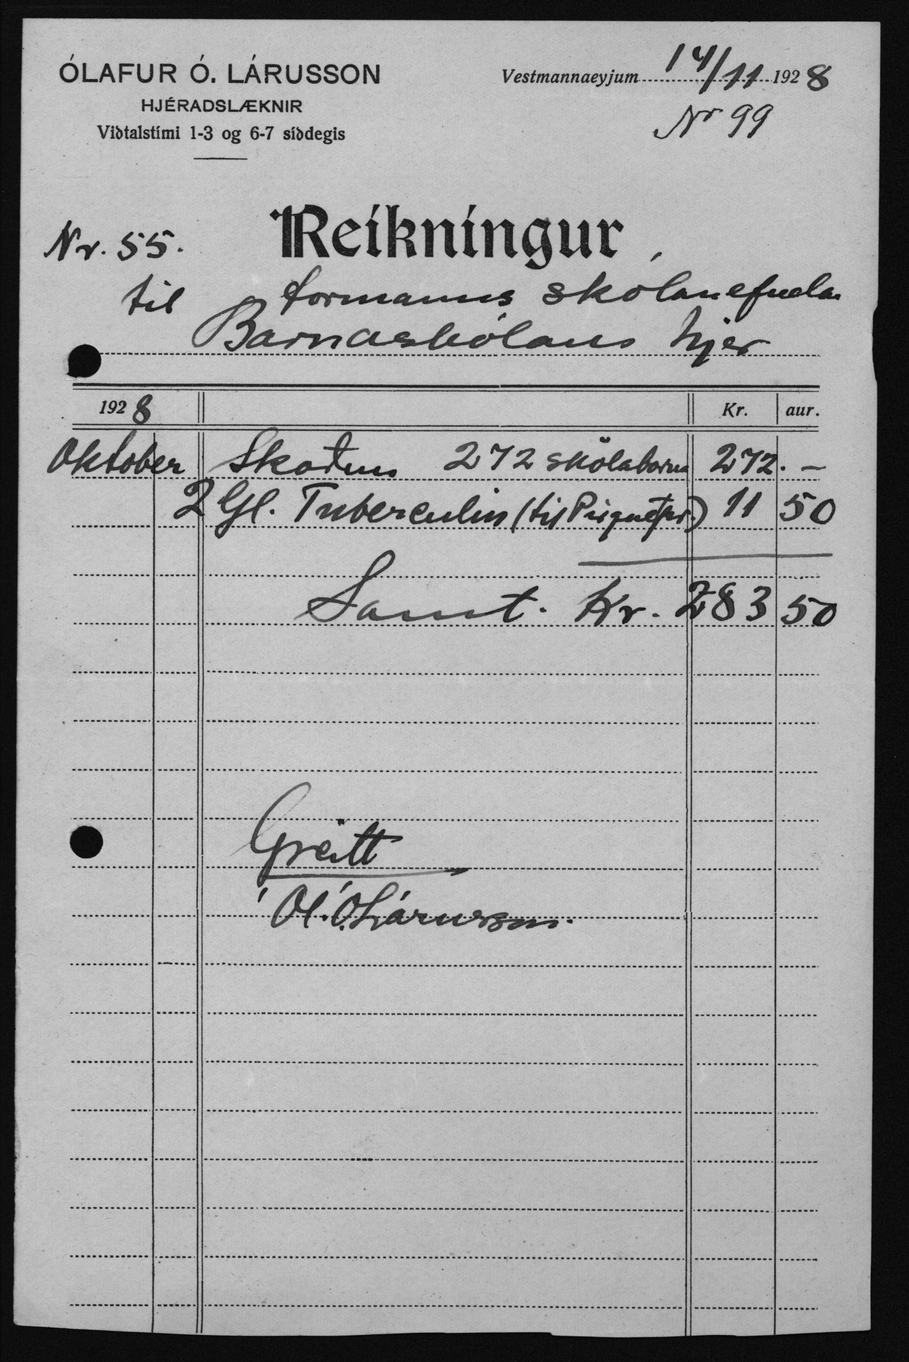 ÓLAFUR Ó. LÁRUSSON
HJÉRADSLÆKNIR
Viðtalstími 1-3 og 6-7 síðdegis
Vestmannaeyjum 14/11 1928
Nr 99
Nr. 55.
Reikningur
til formanns skólanefndar
Barnaskólans hjer
1928 Kr. aur.
Oktober Skoðun 272 skólabarna 272. –
2 Gl. Tuberculin (til Pirquetpr.) 11 50
Samt. Kr. 283 50
Greitt
Ól. Ó. Lárusson.